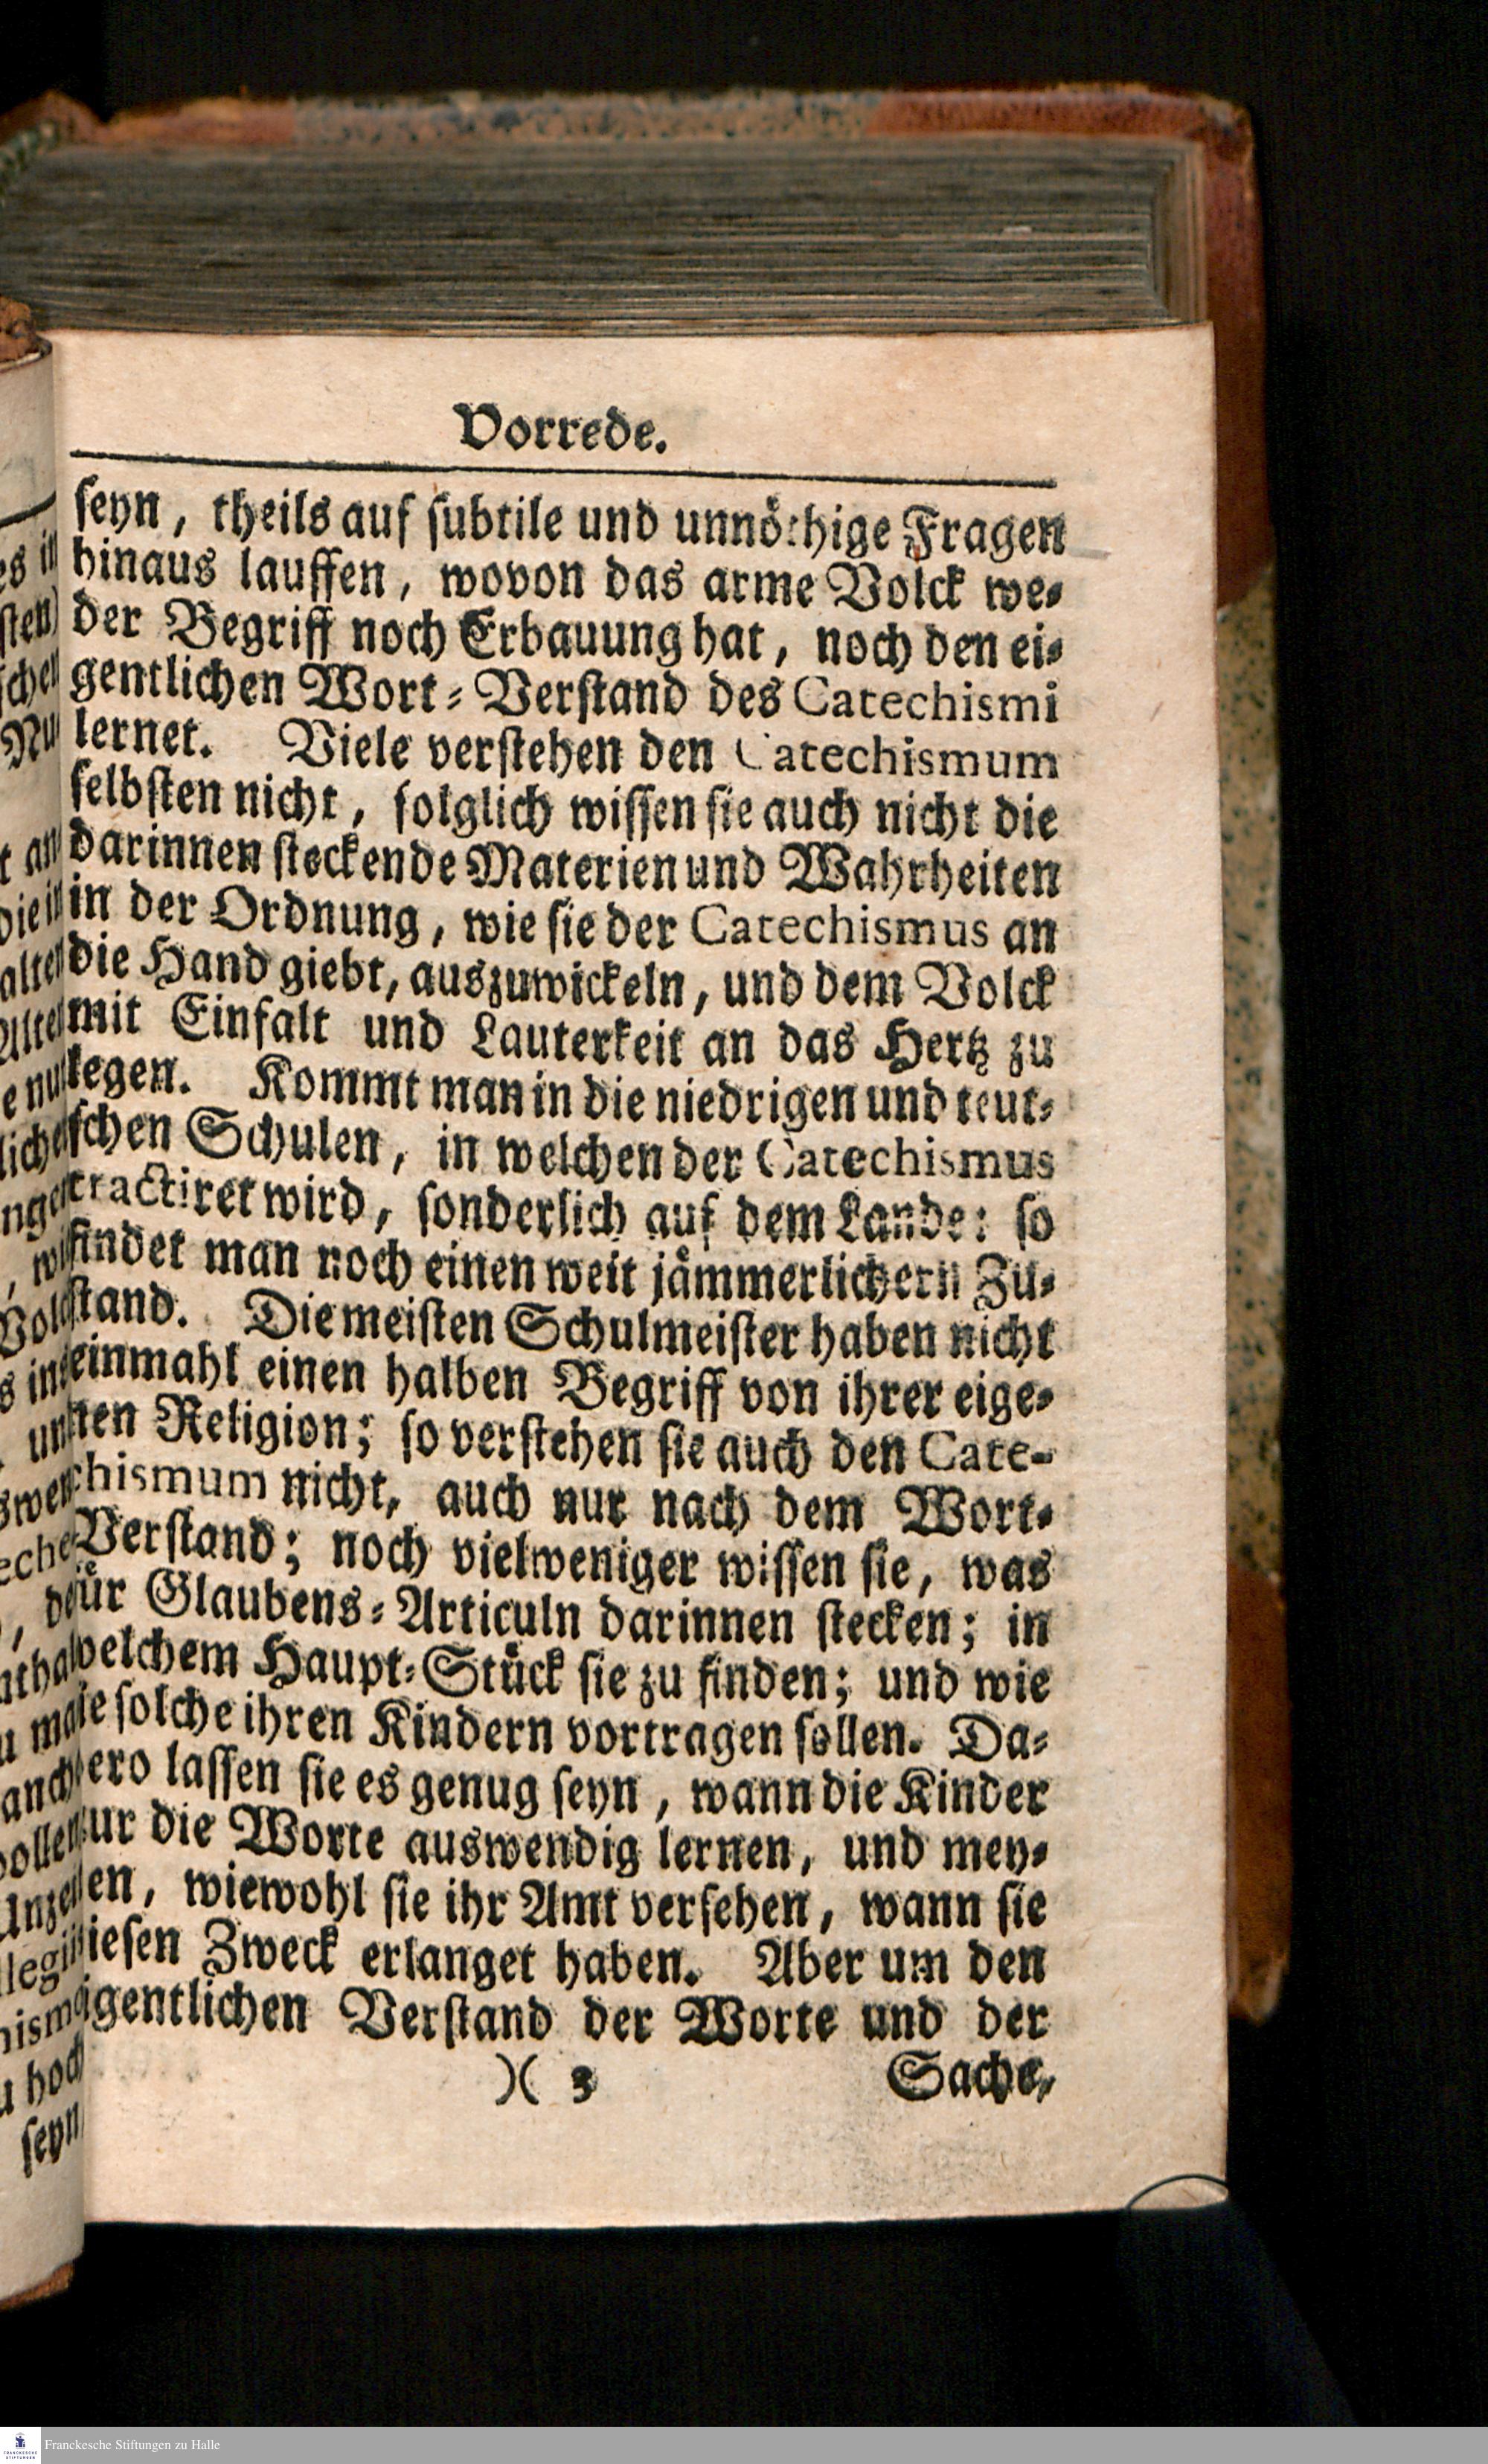 Vorrede.
seyn, theils auf subtile und unnöthige Fragen
hinaus lauffen, wovon das arme Volck we-
der Begriff noch Erbauung hat, noch den ei-
gentlichen Wort-Verstand des Catechismi
lernet. Viele verstehen den Catechismum
selbsten nicht, folglich wissen sie auch nicht die
darinnen steckende Materien und Wahrheiten
in der Ordnung, wie sie der Catechismus an
die Hand giebt, auszuwickeln, und dem Volck
mit Einfalt und Lauterkeit an das Hertz zu
legen. Kommt man in die niedrigen und teut-
schen Schulen, in welchen der Catechismus
tractiret wird, sonderlich auf dem Lande: so
findet man noch einen weit jämmerlichern Zu-
stand. Die meisten Schulmeister haben nicht
einmahl einen halben Begriff von ihrer eige-
nen Religion; so verstehen sie auch den Cate-
chismum nicht, auch nur nach dem Wort-
Verstand; noch vielweniger wissen sie, was
für Glaubens-Articuln darinnen stecken; in
welchem Haupt-Stück sie zu finden; und wie
sie solche ihren Kindern vortragen sollen. Da-
hero lassen sie es genug seyn, wann die Kinder
nur die Worte auswendig lernen, und mey-
nen, wiewohl sie ihr Amt versehen, wann sie
diesen Zweck erlanget haben. Aber um den
eigentlichen Verstand der Worte und der
)( 3 Sache,
Franckesche Stiftungen zu Halle